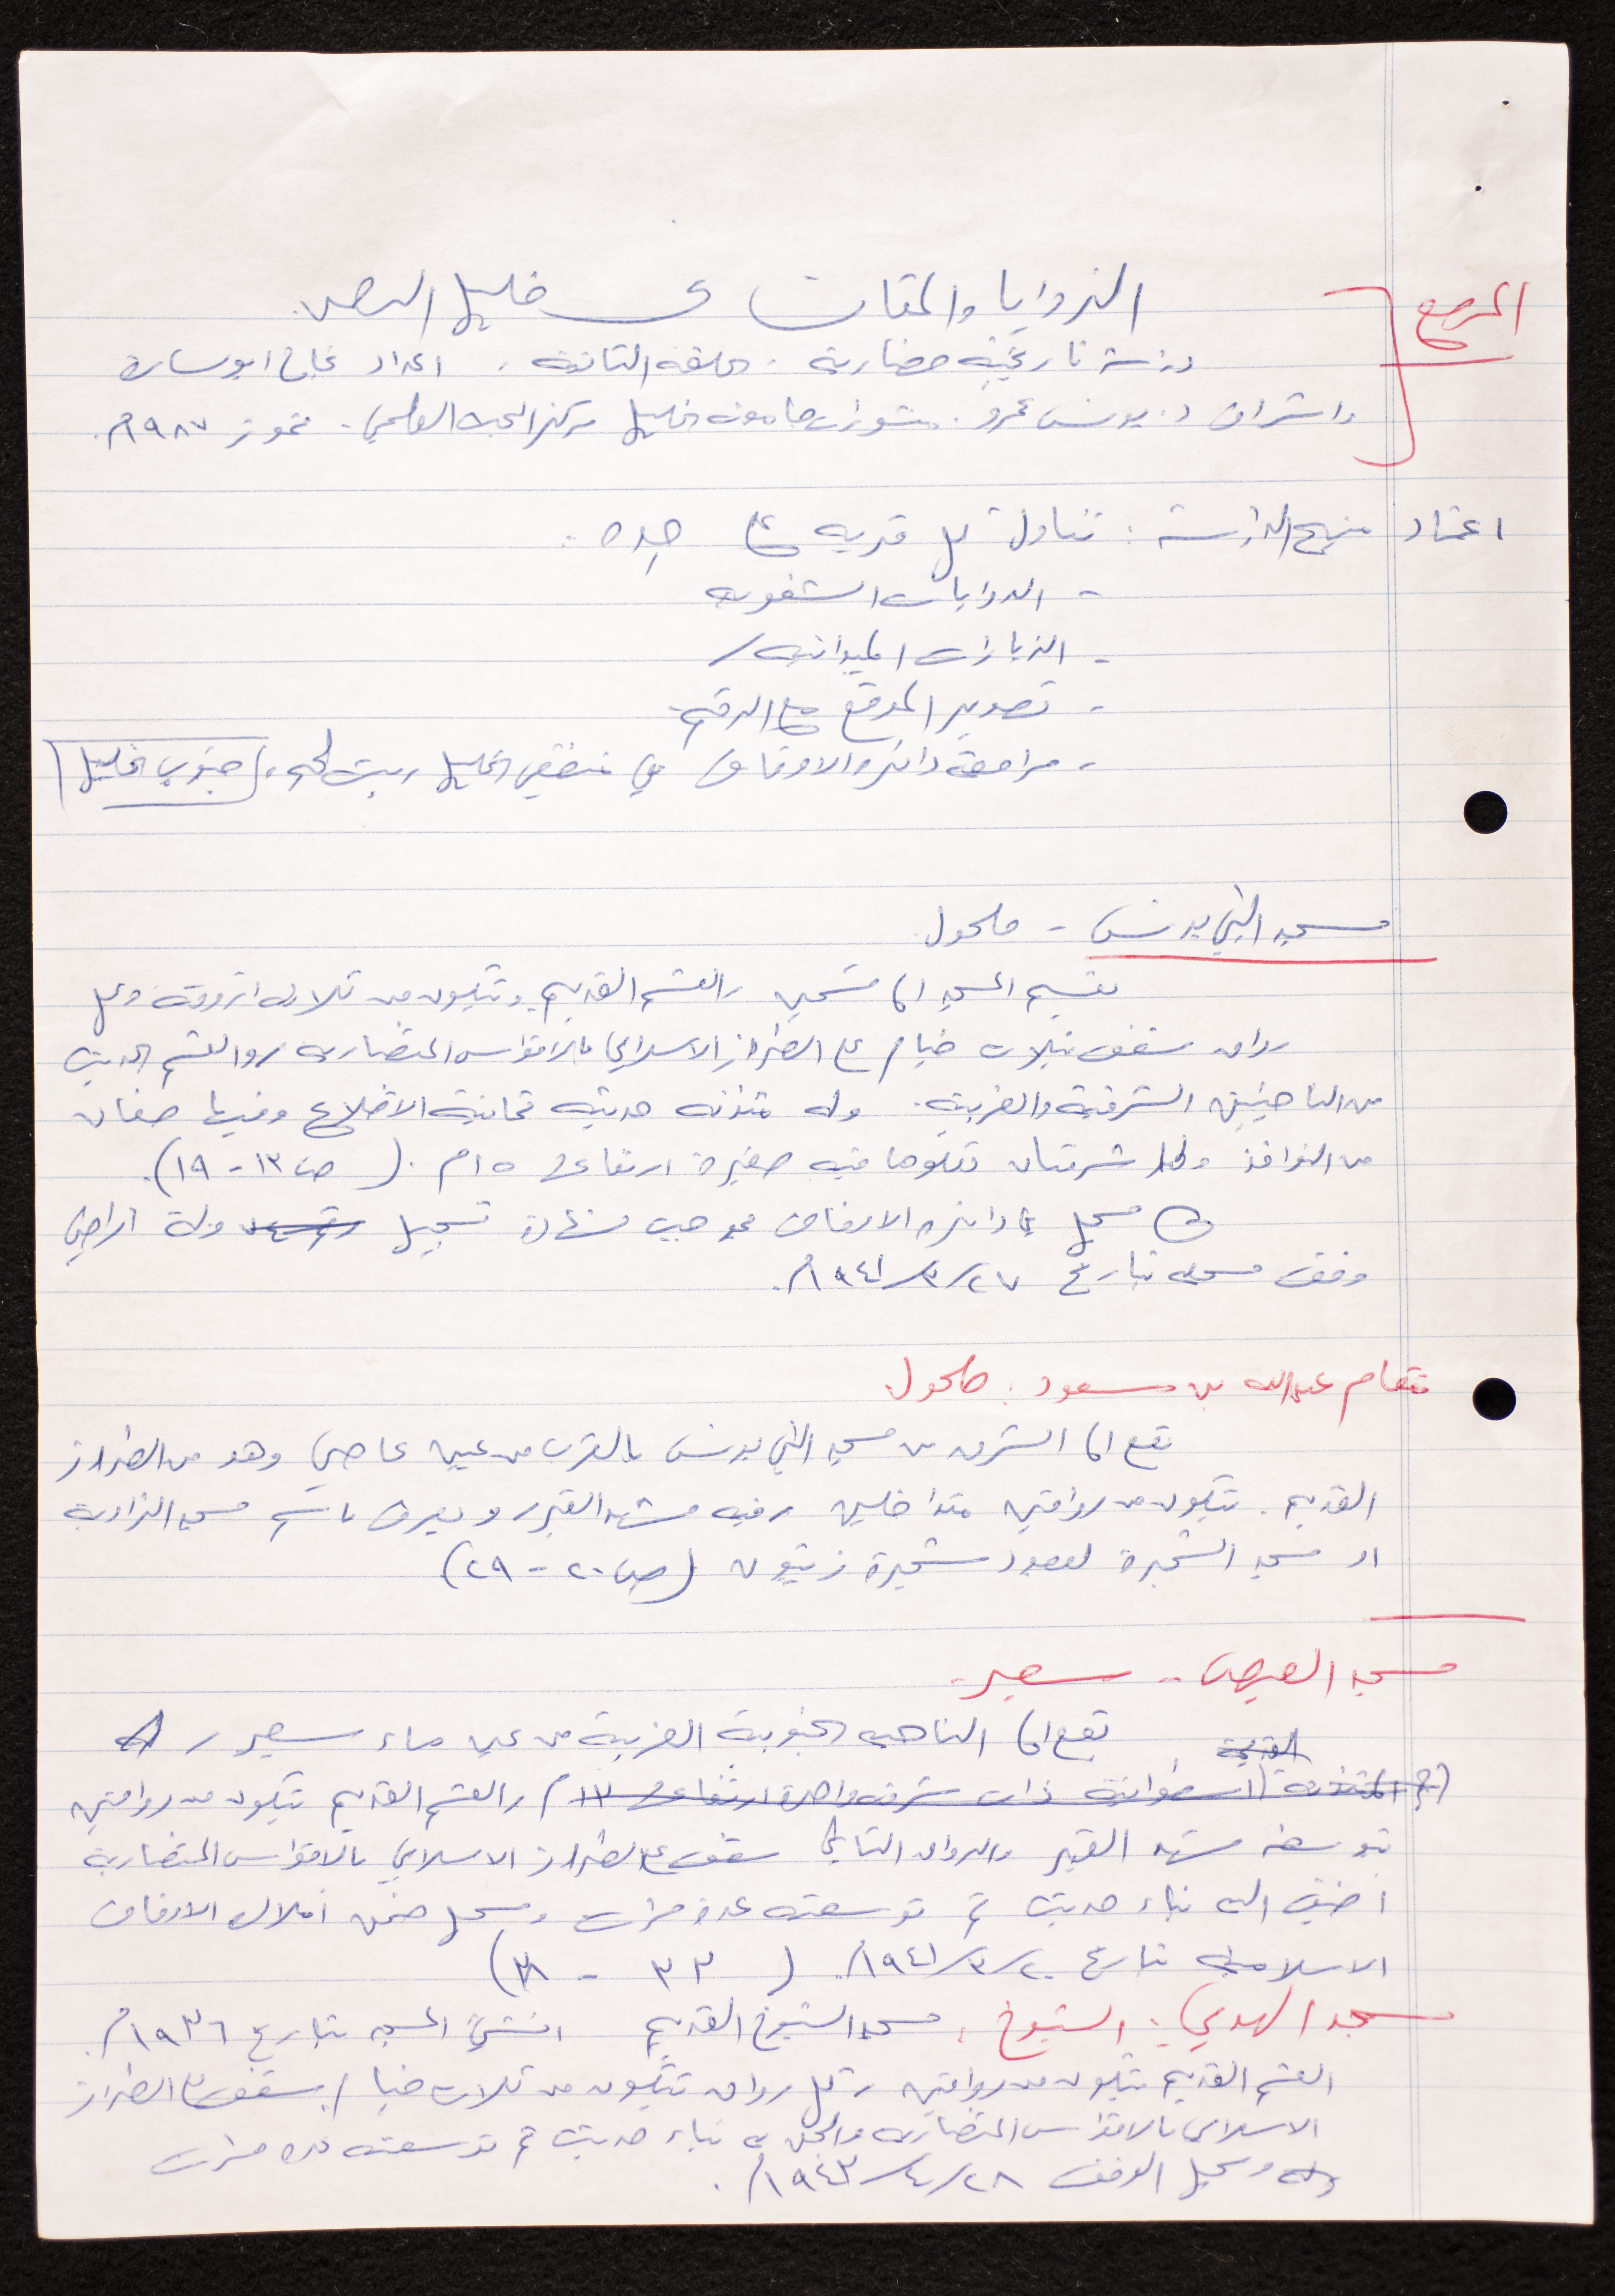 المرجع
الزوايا والمقامات في خليل الرحمن
دراسة تاريخية حضارية . الحلقة الثانية . اعداد نجاح ابو سارة
واشراف د. يونس عمرو . منشورات جامعة الخليل مركز البحث العلمي . تموز ١٩٨٧م.
اعتماد منهج الدراسة : تناول كل قرية على حده :
- الروايات الشفوية
- الزيارات الميدانية /
- تصوير الموقع مع الرقم.
- مراجعة دائرة الاوقاف في منطقتي الخليل وبيت لحم، جنوب الخليل
مسجد النبي يونس - حلحول
يقسم المسجد الى قسمين ، القسم القديم ويتكون من ثلاثة اروقة وكل
رواق سقف بثلاث خيام على الطراز الاسلامي بالاقواس المتصاربه ، والقسم الحديث
من الناحيتين الشرقية والغربية . وله مئذنه حديثه ثمانية الاضلاع وفيها صفان
من النوافذ ولها شرفتان تعلوها قبه صغيرة ارتفاعها ١٥م . ( ص ١٣ - ١٩ ).
مسجل في دائرة الاوقاف بموجب شهادة تسجيل ارض
وقف مسجله بتاريخ ٢٧/٣/١٩٤١م.
مقام عبدالله بن مسعود . حلحول
يقع الى الشرق من مسجد النبي يونس بالقرب من عين عاصي وهو من الطراز
القديم . يتكون من رواقين متداخلين ، فيه مشهد القبر ويعرف باسم مسجد الزاوية
او مسجد الشجرة لوجود شجرة زيتون ( ص ٢٠ - ٢٩ )
مسجد العيص - سعير -
يقع الى الناحيه الجنوبية الغربية من عين ماء سعير ،
القديمة
( المئذنة اسطوانية ذات شرفه واحدة ارتفاعها ١٣م ) ، القسم القديم يتكون من رواقين
يتوسطه مشهد القبر والرواق الثاني سقف على الطراز الاسلامي بالاقواس المتصاربة
اضيف اليه بناء حديث تم توسعته عدة مرات وسجل ضمن املاك الاوقاف
الاسلامية بتاريخ ٢٠/٣/١٩٤١م. ( ٣٣ - ٣٨ )
مسجد الهدمي : الشيوخ ، مسجد الشيوخ القديم انشئ المسجد بتاريخ ١٩٣٦م.
القسم القديم يتكون من رواقين ، كل رواق يتكون من ثلاث خيام ، سقف على الطراز
الاسلامي بالاقواس المتصاربه والحق به بناء حديث تم توسعته عده مرات
وسجل الوقف ٢٨/٤/١٩٤٣م.